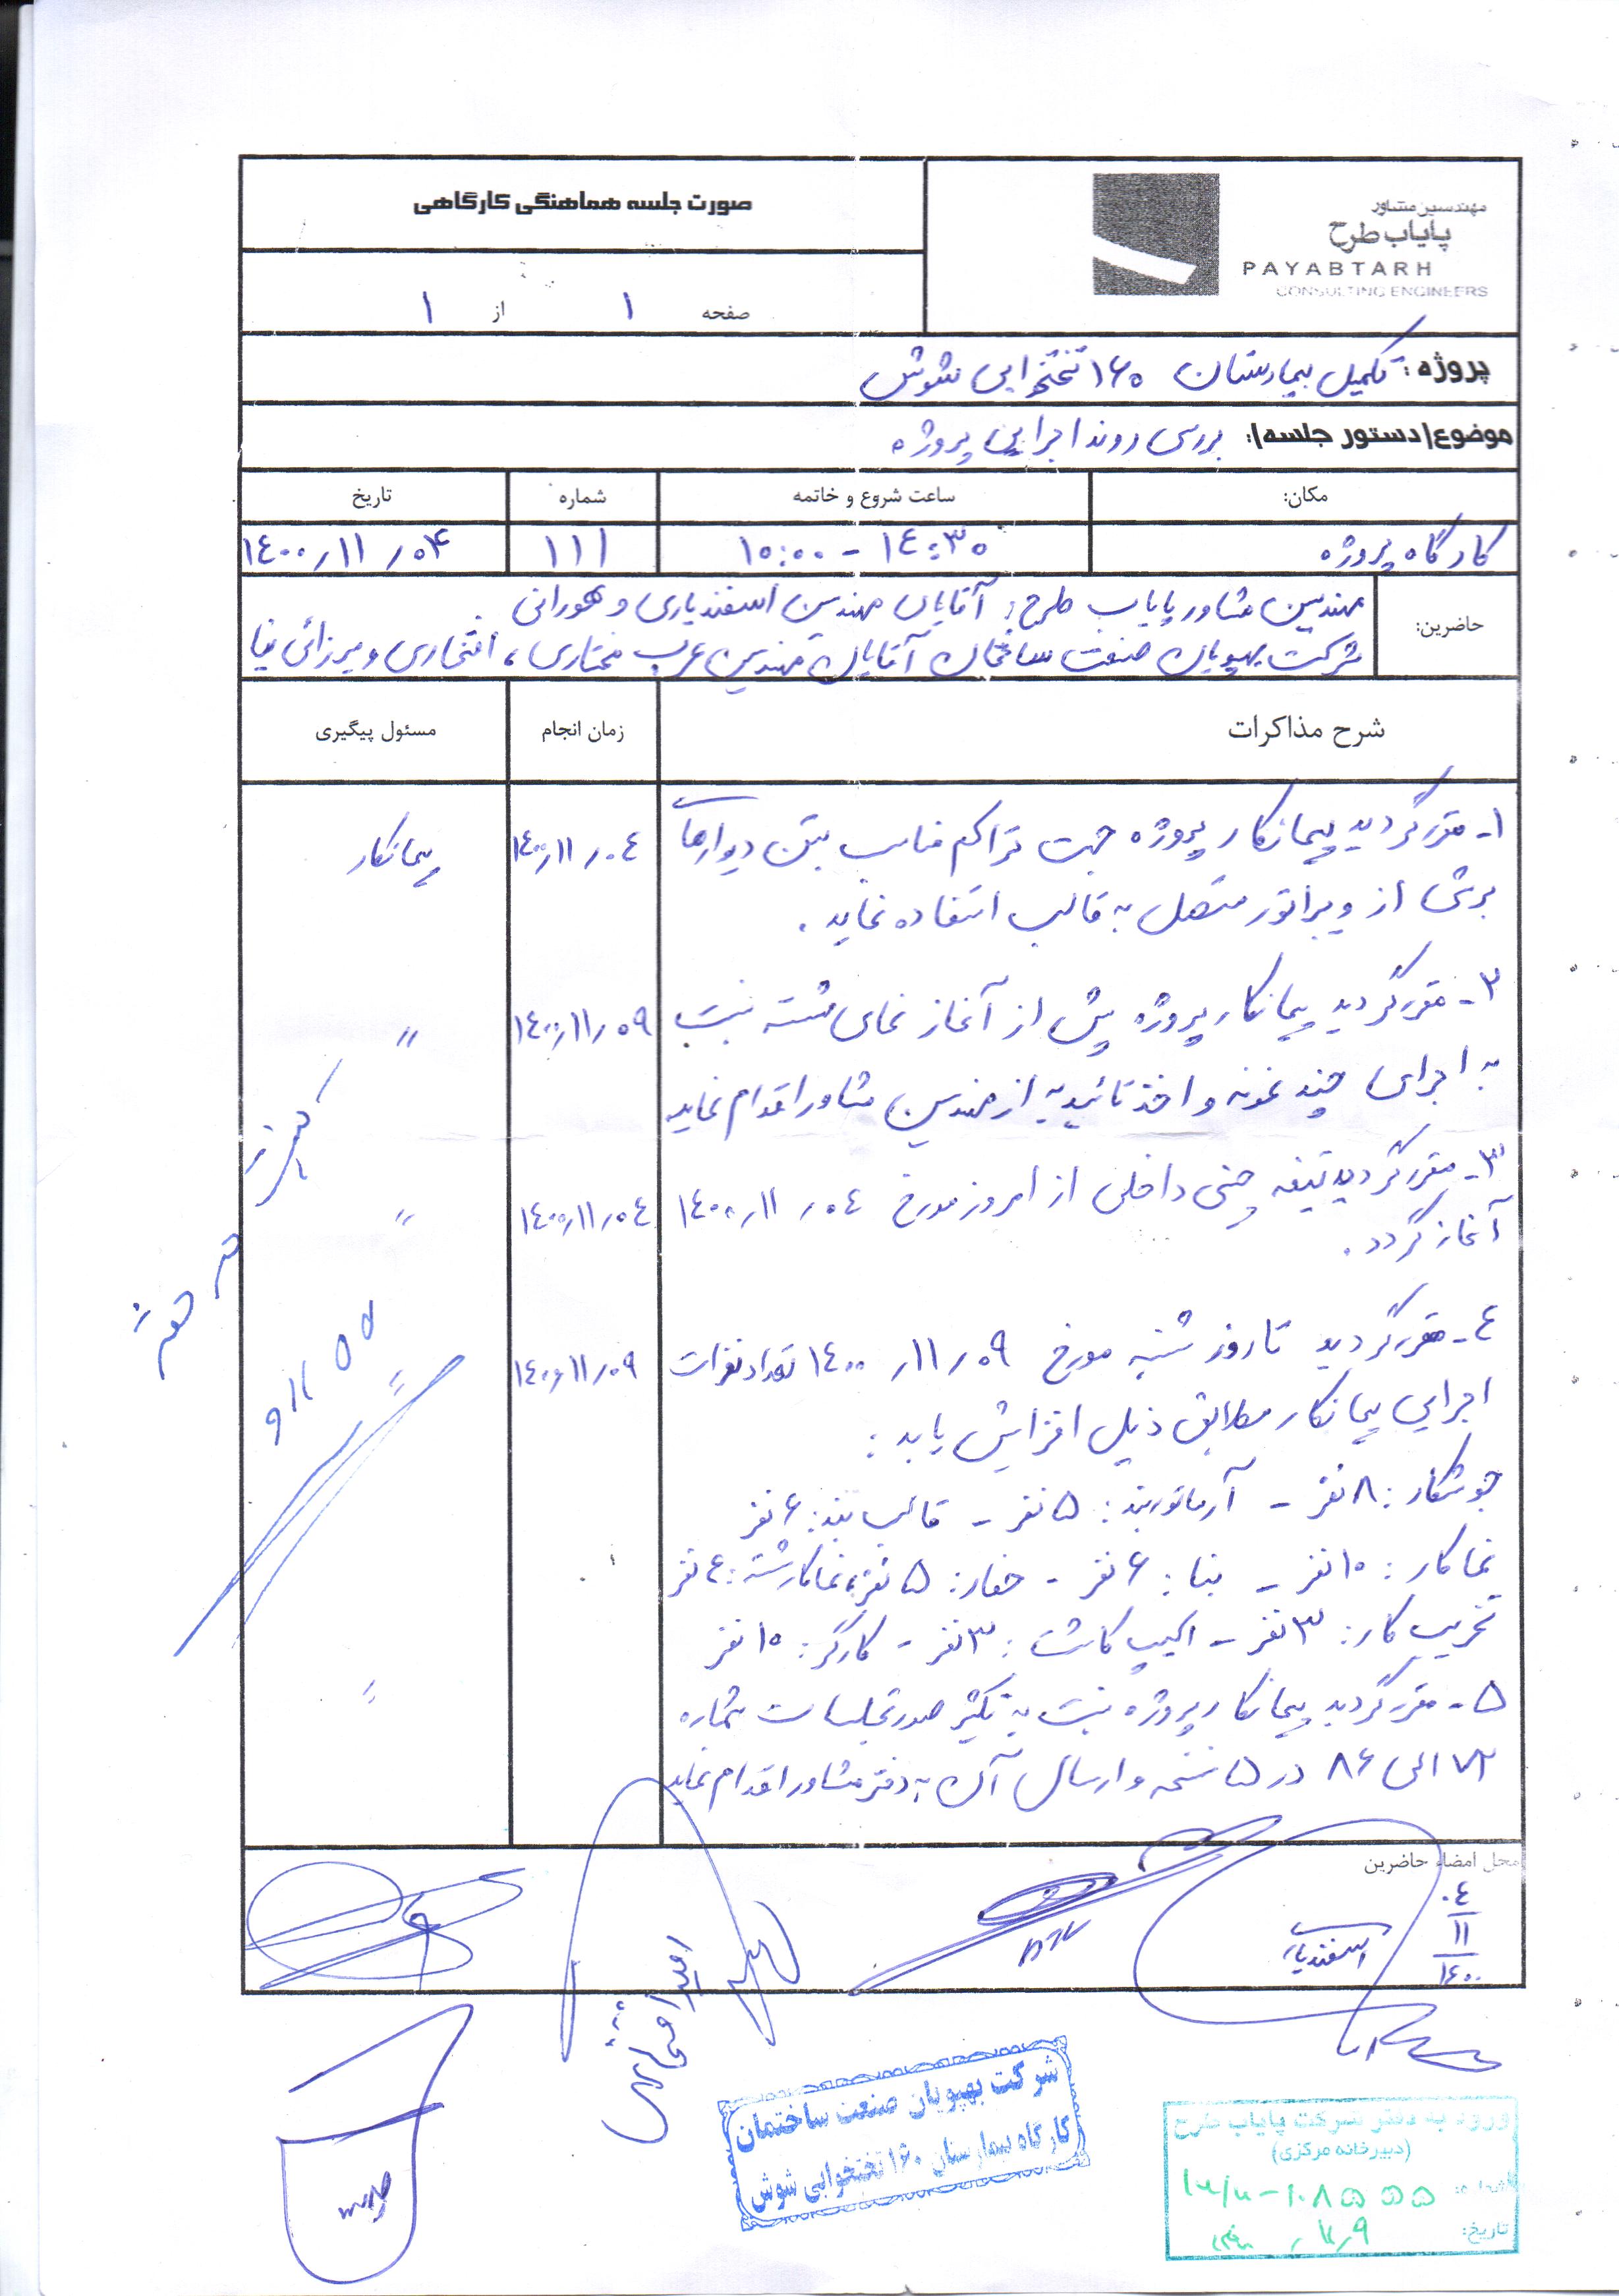 صورت جلسه هماهنگی کارگاهی
مهندسین مشاور
پایاب طرح
PAYABTARH
CONSULTING ENGINEERS
صفحه ۱ از ۱
پروژه: تکمیل بیمارستان ۱۶۰ تختخوابی شوش
موضوع (دستور جلسه): بررسی روند اجرایی پروژه
مکان: ساعت شروع و خاتمه شماره تاریخ
کارگاه پروژه ۱۰:۰۰ - ۱۴:۳۰ ۱۱۱ ۱۴۰۰/۱۱/۰۴
حاضرین:
مهندسین مشاور پایاب طرح: آقایان مهندسین اسفندیاری و هورانی
شرکت بهپویان صنعت ساختمان آقایان مهندسین عرب مختاری، افتخاری و میرزائی نیا
شرح مذاکرات زمان انجام مسئول پیگیری
۱- مقرر گردید پیمانکار پروژه جهت تراکم مناسب بتن دیوارهای ۱۴۰۰/۱۱/۰۴ پیمانکار
برشی از ویبراتور متصل به قالب استفاده نماید.
۲- مقرر گردید پیمانکار پروژه پیش از آغاز نمای شسته نسبت ۱۴۰۰/۱۱/۰۹ "
به اجرای چند نمونه و اخذ تائیدیه از مهندسین مشاور اقدام نماید
۳- مقرر گردید تیغه چینی داخلی از امروز مورخ ۱۴۰۰/۱۱/۰۴ ۱۴۰۰/۱۱/۰۴ "
آغاز گردد.
۴- مقرر گردید تا روز شنبه مورخ ۱۴۰۰/۱۱/۰۹ تعداد نفرات ۱۴۰۰/۱۱/۰۹ "
اجرایی پیمانکار مطابق ذیل افزایش یابد:
جوشکار: ۸ نفر - آرماتوربند: ۵ نفر - قالب بند: ۶ نفر
نماکار: ۱۰ نفر - بنا: ۶ نفر - حفار: ۵ نفر، نماکار شسته: ۴ نفر
تخریب کار: ۳ نفر - اکیپ کاشت: ۳ نفر - کارگر: ۱۰ نفر
۵- مقرر گردید پیمانکار پروژه نسبت به تکثیر صورتجلسات شماره "
۷۲ الی ۸۶ در ۵ نسخه و ارسال آن به دفتر مشاور اقدام نماید
محل امضاء حاضرین
۰۴
۱۱
۱۴۰۰
اسفندیاری
شرکت بهپویان صنعت ساختمان
کارگاه بیمارستان ۱۶۰ تختخوابی شوش
ورود به دفتر شرکت پایاب طرح
(دبیرخانه مرکزی)
شماره:
تاریخ: